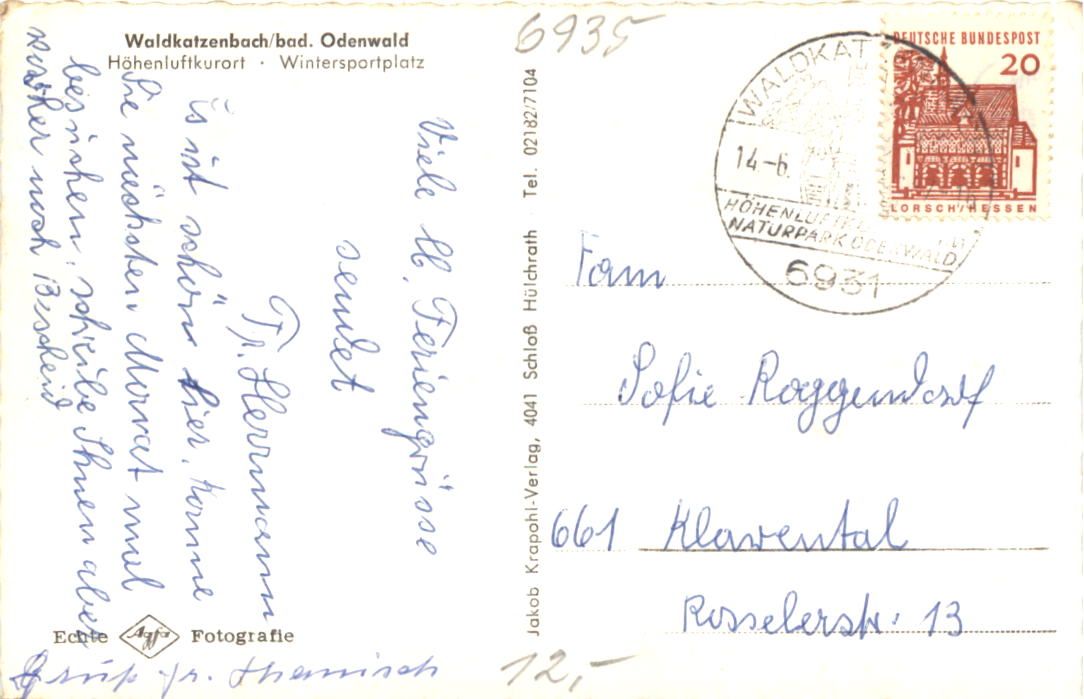 Waldkatzenbach/bad. Odenwald
Höhenluftkurort · Wintersportplatz
Viele lb. Feriengrüsse
sendet
Fr. Herrmann
Es ist schön hier, komme
Sie nächsten Monat mal
besuchen, schreibe Ihnen aber
vorher noch Bescheid
Gruß Fr. Hanisch
Echte Agfa Fotografie
Jakob Krapohl-Verlag, 4041 Schloß Hülchrath · Tel. 02182/7104
6935
DEUTSCHE BUNDESPOST
20
LORSCH/HESSEN
WALDKAT
14-6.
HÖHENLUFT
NATURPARK ODENWALD
6931
Fam
Sofie Roggendorf
661 Klarental
Rosselerstr. 13
12,-